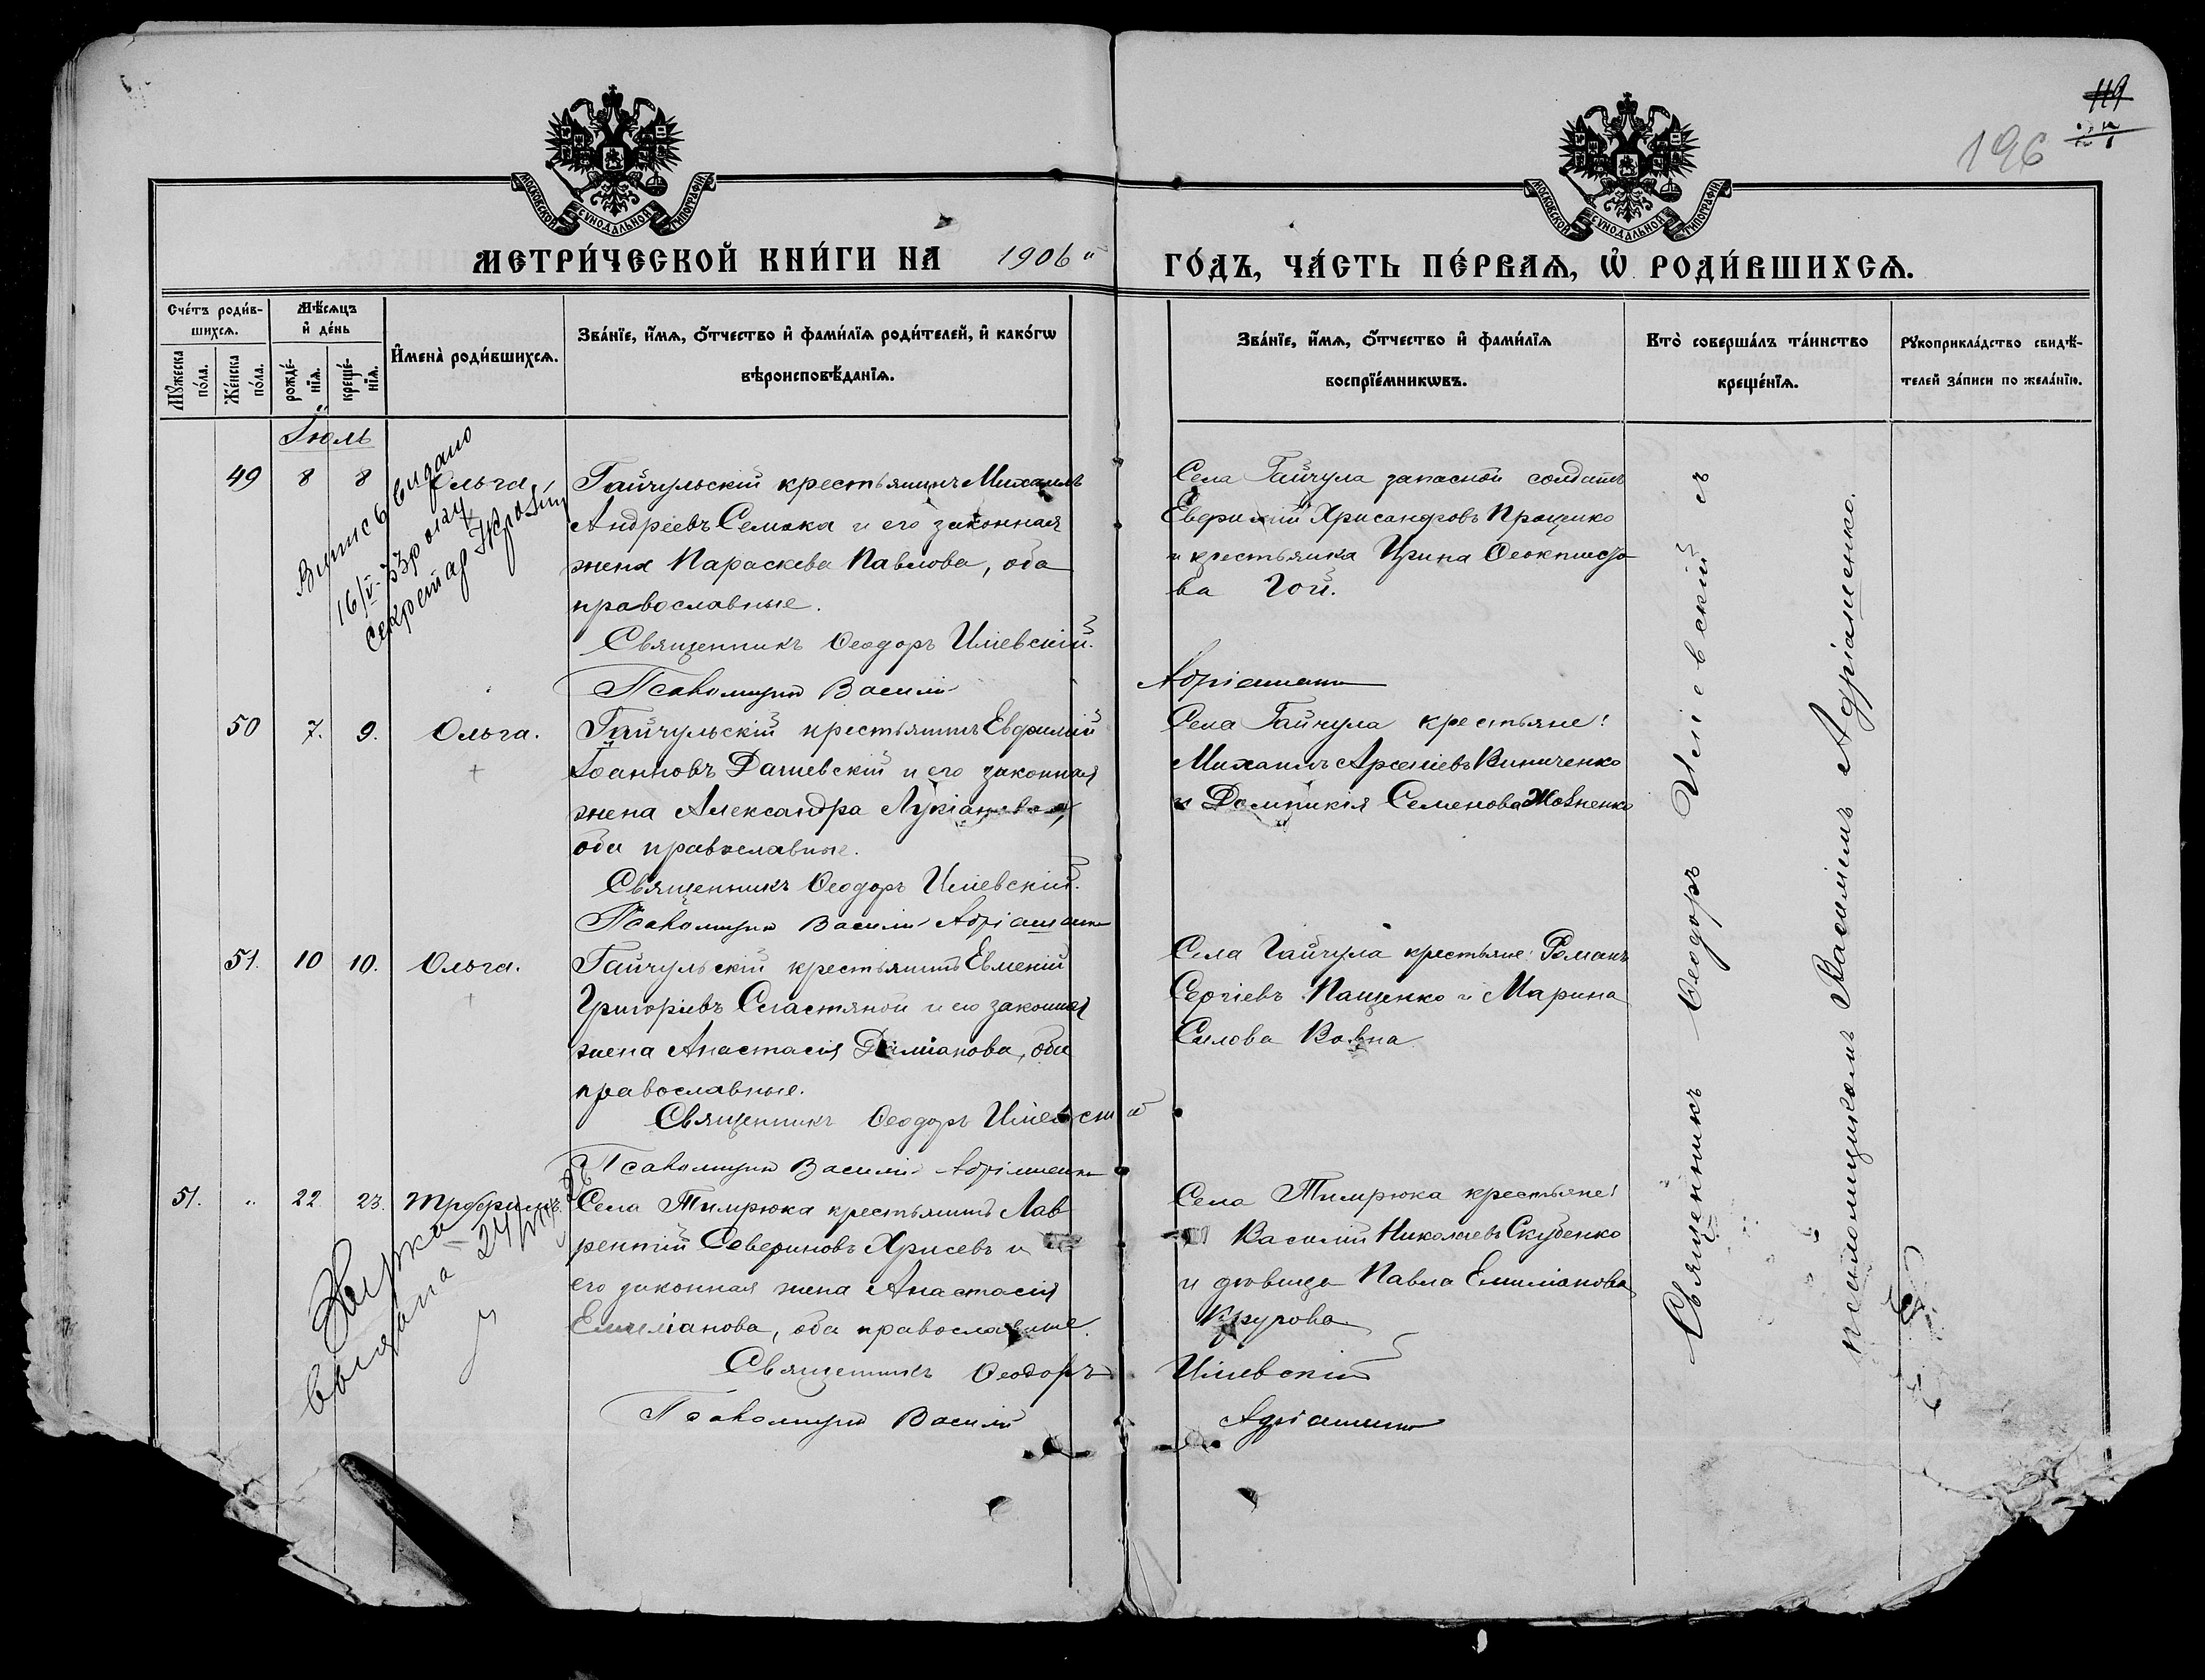 119
196
МОСКОВСКОЙ СѴНОДАЛЬНОЙ ТИПОГРАФІИ
МОСКОВСКОЙ СѴНОДАЛЬНОЙ ТИПОГРАФІИ
МЕТРИ́ЧЕСКОЙ КНИ́ГИ НА 1906 й ГО́ДЪ, ЧА́СТЬ ПЕ́РВАѦ, Ѡ҆ РОДИ́ВШИХСѦ.
Сче́тъ роди́в-
шихсѧ.
Мѣ́сѧцъ
и҆ де́нь
Мꙋ́жеска
по́ла.
Же́нска
по́ла.
рожде́-
нїѧ.
креще́-
нїѧ.
И҆мена̀ роди́вшихсѧ.
Зва́нїе, и҆́мѧ, ѻ҆́тчество и҆ фами́лїѧ роди́телей, и҆ како́гѡ
вѣроисповѣ́данїѧ.
Зва́нїе, и҆́мѧ, ѻ҆́тчество и҆ фами́лїѧ
воспрїе́мникѡвъ.
Кто̀ соверша́лъ та́инство
креще́нїѧ.
Рꙋкоприкла́дство свидѣ́-
телей за́писи по жела́нїю.
Іюль
49 8 8 Ольга.
Гайчульскій крестьянинъ Михаилъ
Андреевъ Семака и его законная
жена Параскева Павлова, оба
православные.
Священникъ Ѳеодоръ Иліевскій.
Псаломщикъ Василій Адріаненко
Села Гайчула запасной солдатъ
Хрисанфовъ Проценко
и крестьянка Ирина Ѳеоктисто
ва Гой.
Выпись выдано
16/V
секретар
50 7. 9. Ольга.
Гайчульскій крестьянинъ Евфимій
Іоанновъ Дашевскій и его законная
жена Александра Лукіанова,
оба православные.
Священникъ Ѳеодоръ Иліевскій.
Псаломщикъ Василій Адріаненко
Села Гайчула крестьяне:
Михаилъ Арсеніевъ Виниченко
и Домникія Семенова Жовненко
51. 10 10. Ольга.
Гайчульскій крестьянинъ Евменій
Григоріевъ Сластяной и его законная
жена Анастасія Даміанова, оба
православные.
Священникъ Ѳеодоръ Иліевскій
Псаломщикъ Василій Адріаненко
Села Гайчула крестьяне: Романъ
Сергіевъ Пащенко и Марина
Силова Вовна
51. " 22 23. Трофимъ.
Села Темрюка крестьянинъ Лав
рентій Севериновъ Хрисевъ и
его законная жена Анастасія
Емиліанова, оба православные.
Священникъ Ѳеодоръ Иліевскій
Псаломщикъ Василій Адріаненко
Села Темрюка крестьяне:
Василій Николаевъ Скубенко
и дѣвица Павла Емиліанова
Кругова
выдана 24/
Священникъ Ѳеодоръ Иліевскій съ
псаломщикомъ Василіемъ Адріаненко.